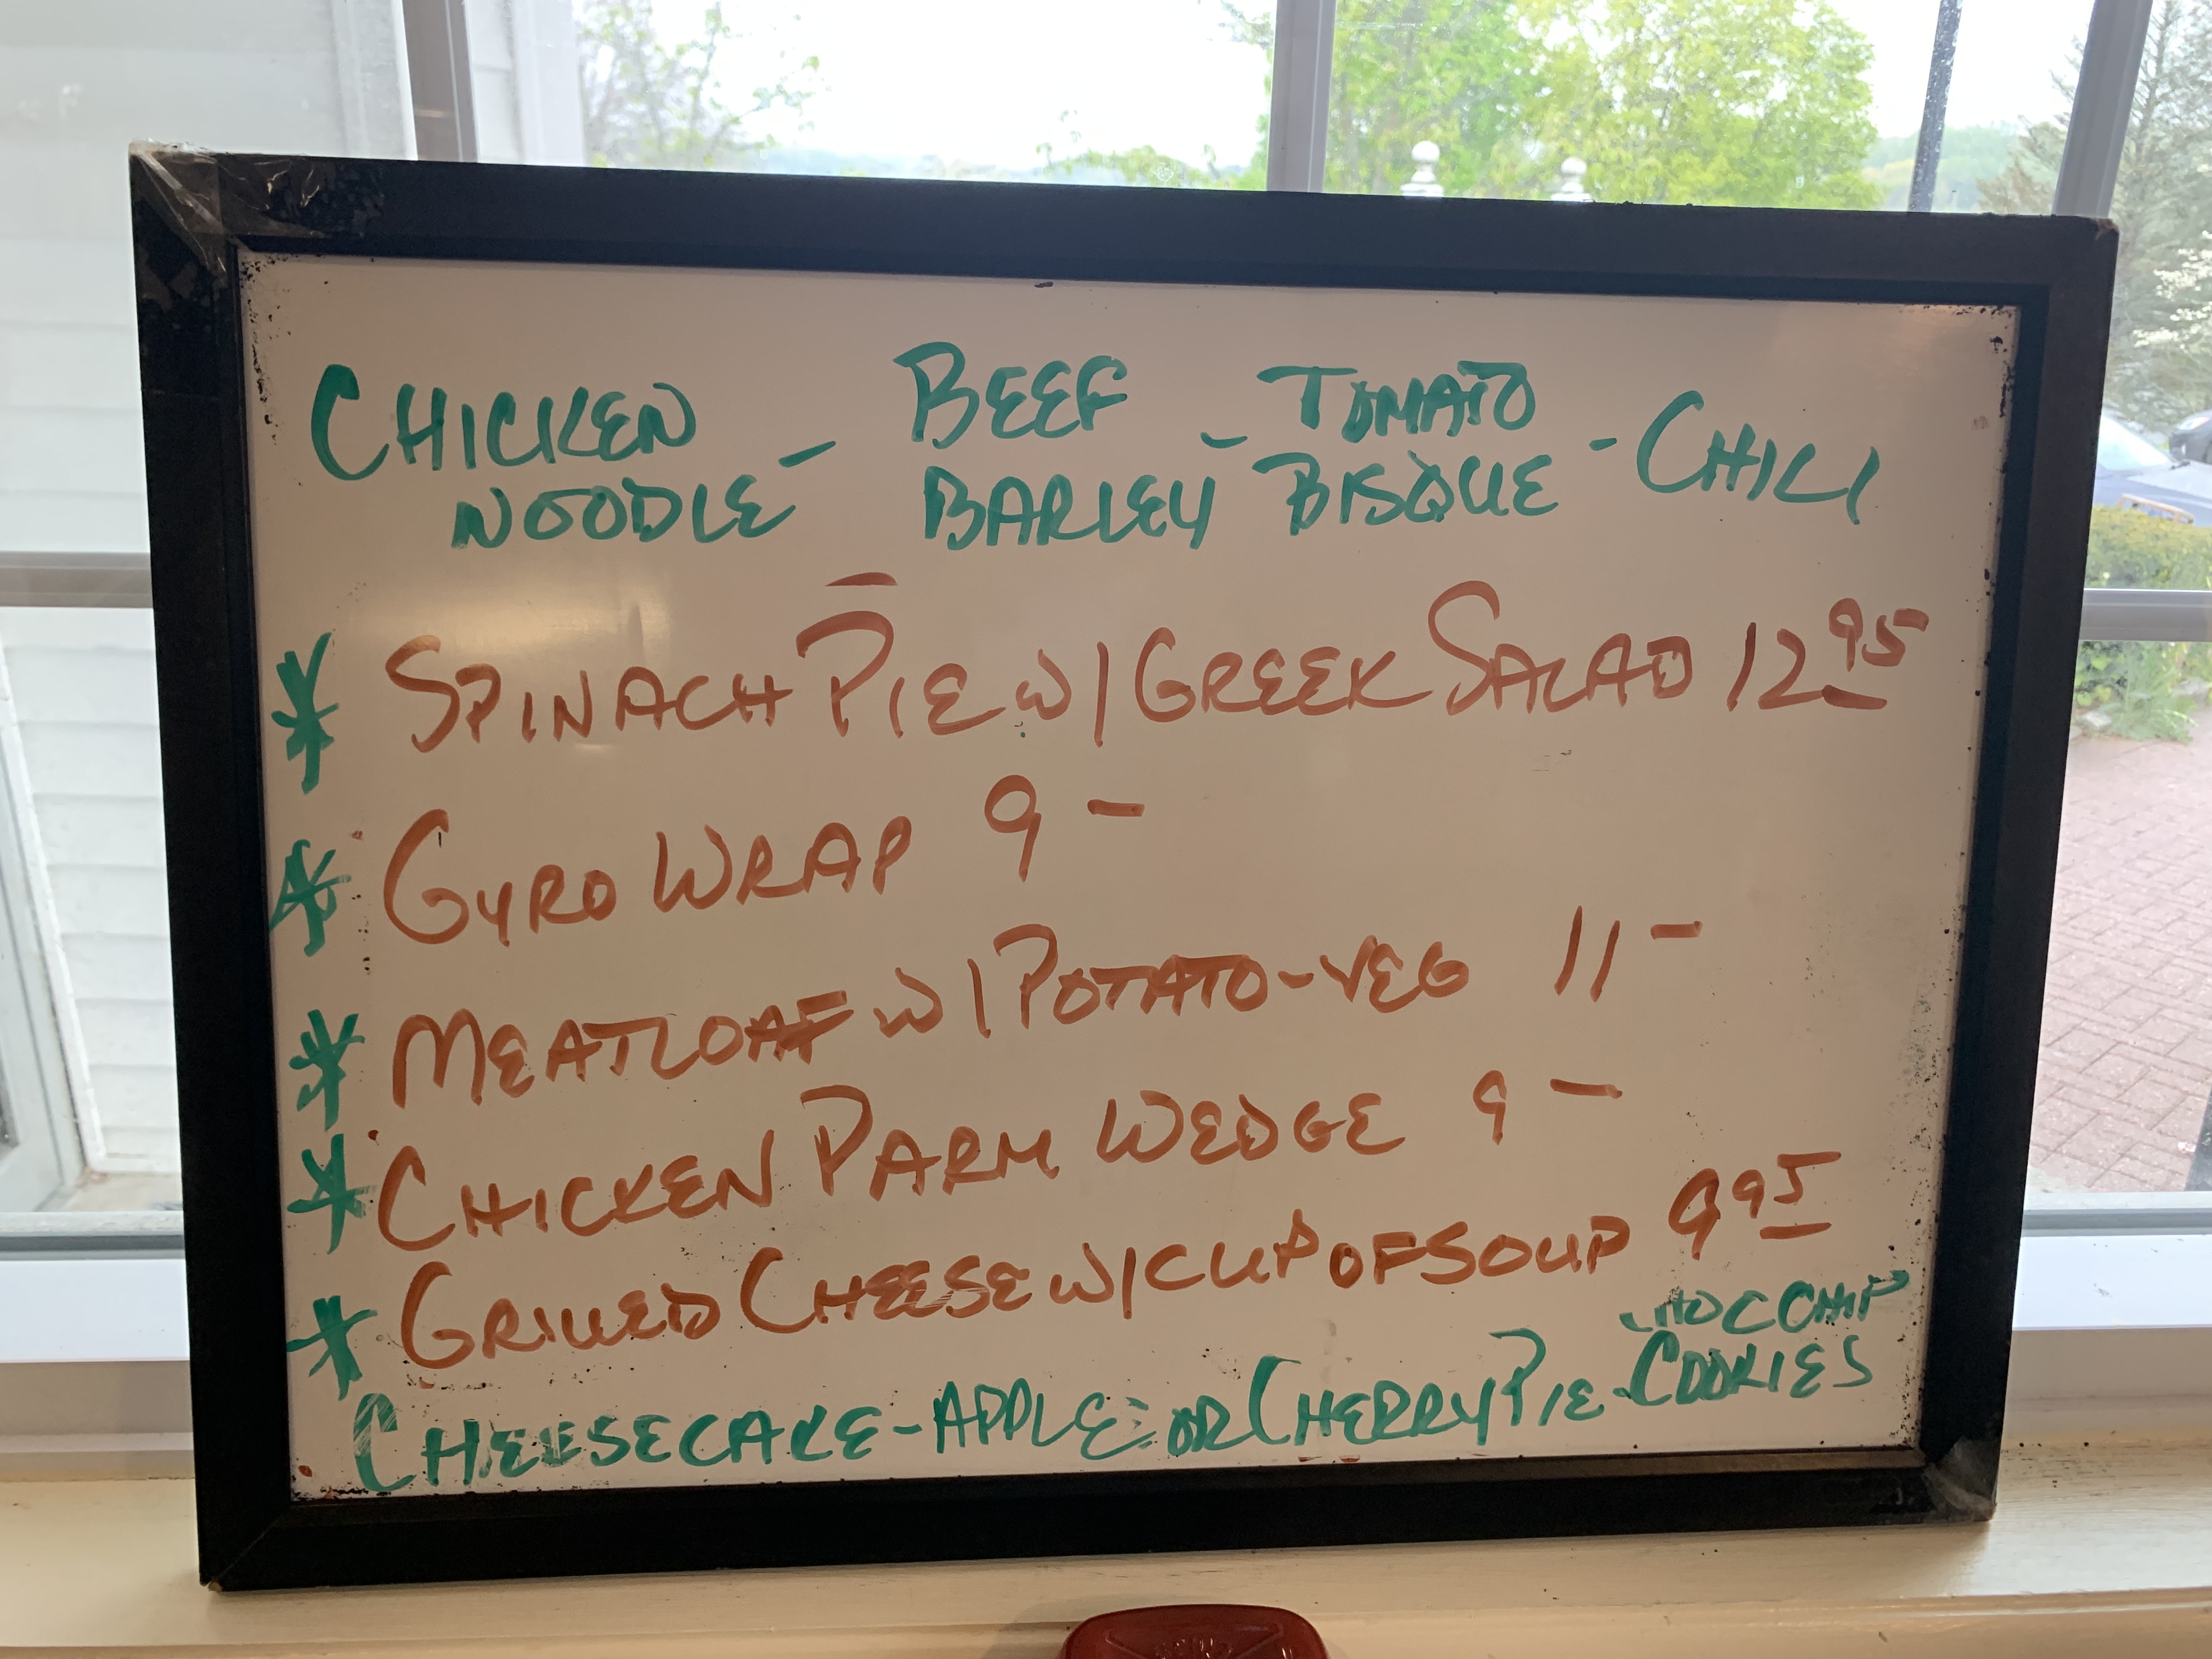 CHICKEN - BEEF - TOMATO - CHILI
NOODLE BARLEY BISQUE
* SPINACH PIE W/ GREEK SALAD 12 95
* GYRO WRAP 9 -
* MEATLOAF W/ POTATO - VEG 11 -
* CHICKEN PARM WEDGE 9 -
* GRILLED CHEESE W/ CUP OF SOUP 9 95
CHOC CHIP
CHEESECAKE - APPLE OR CHERRY PIE - COOKIES